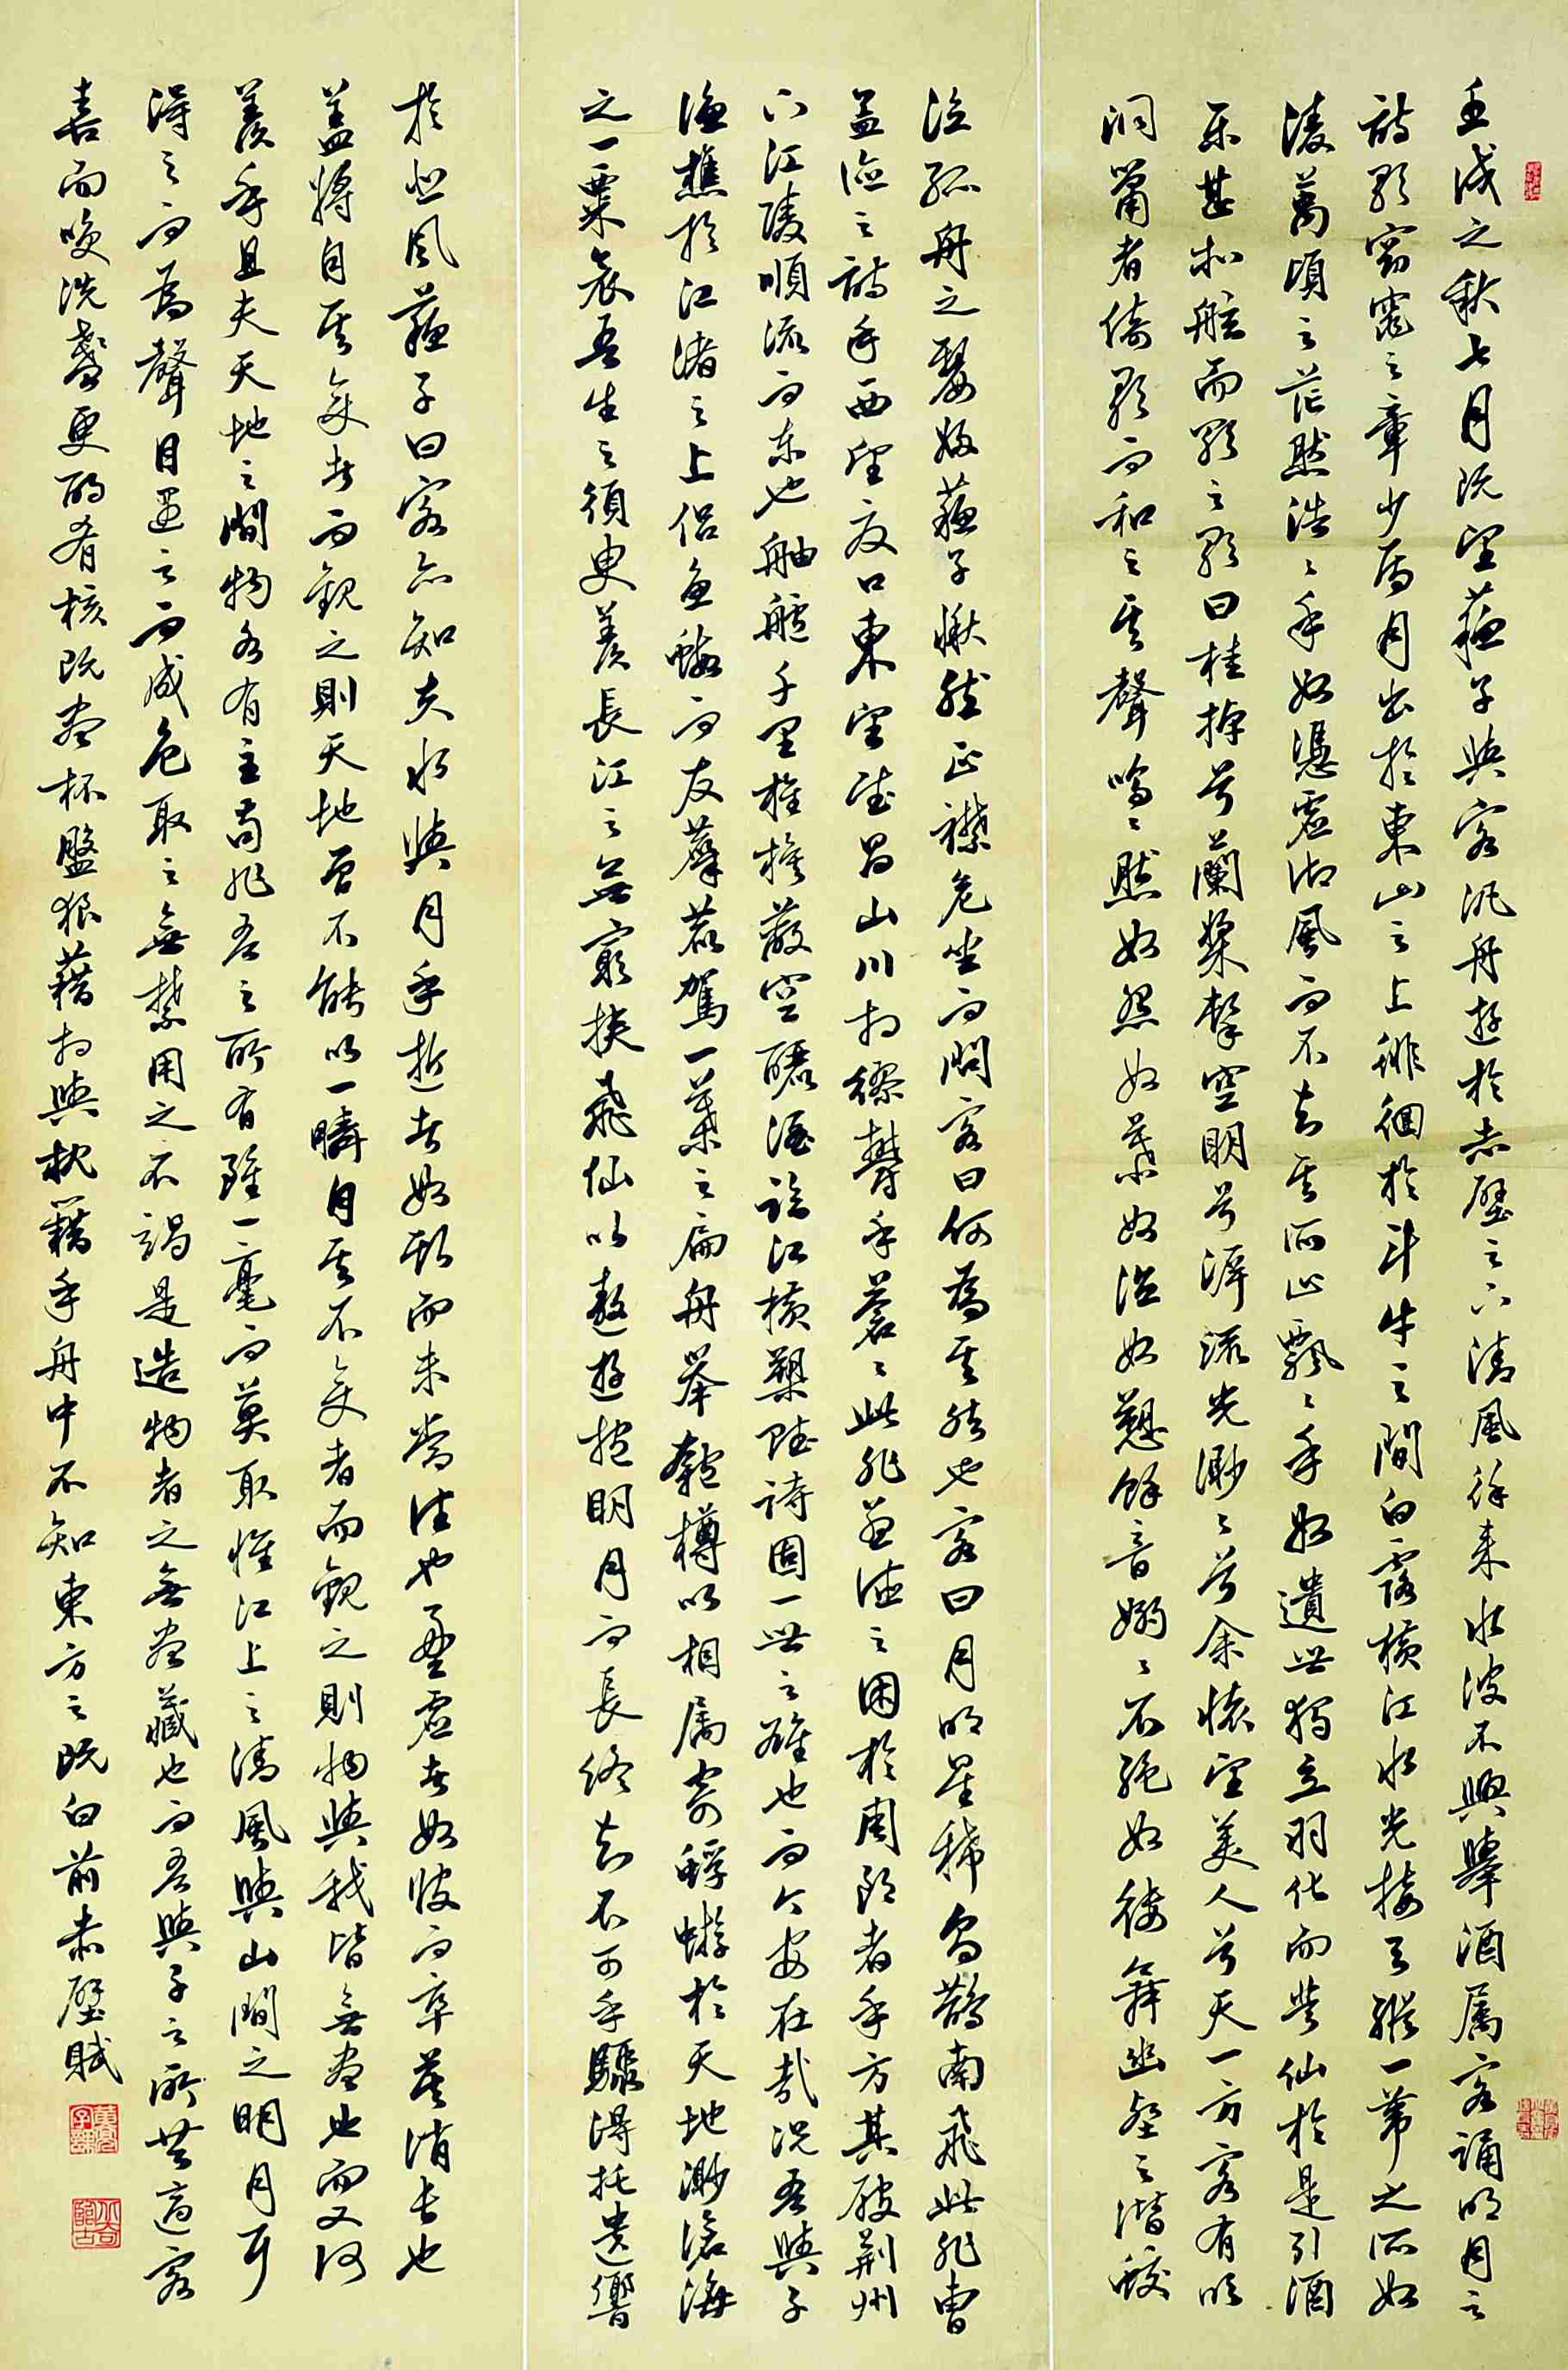 壬戌之秋七月既望蘇子與客汎舟遊於赤壁之下清風徐來水波不興舉酒屬客誦明月之
詩歌窈窕之章少焉月出於東山之上徘徊於斗牛之間白露橫江水光接天縱一葦之所如
淩萬頃之茫然浩々乎如憑虛御風而不知其所止飄々乎如遺世獨立羽化而登仙於是飲酒
樂甚扣舷而歌之歌曰桂棹兮蘭槳擊空明兮泝流光渺々兮余懷望美人兮天一方客有吹
洞簫者倚歌而和之其聲嗚々然如怨如慕如泣如愬餘音嫋々不絕如縷舞幽壑之潛蛟
泣孤舟之嫠婦蘇子愀然正襟危坐而問客曰何為其然也客曰月明星稀烏鵲南飛此非曹
孟德之詩乎西望夏口東望武昌山川相繆鬱乎蒼々此非孟德之困於周郎者乎方其破荊州
下江陵順流而東也舳艫千里旌旗蔽空釃酒臨江橫槊賦詩固一世之雄也而今安在哉況吾與子
漁樵於江渚之上侶魚蝦而友麋鹿駕一葉之扁舟舉匏樽以相屬寄蜉蝣於天地渺滄海
之一粟哀吾生之須臾羨長江之無窮挾飛仙以遨遊抱明月而長終知不可乎驟得托遺響
於悲風蘇子曰客亦知夫水與月乎逝者如斯而未嘗往也盈虛者如彼而卒莫消長也
蓋將自其變者而觀之則天地曾不能以一瞬自其不變者而觀之則物與我皆無盡也而又何
羨乎且夫天地之間物各有主苟非吾之所有雖一毫而莫取惟江上之清風與山間之明月耳
得之而為聲目遇之而成色取之無禁用之不竭是造物者之無盡藏也而吾與子之所共適客
喜而笑洗盞更酌肴核既盡杯盤狼藉相與枕藉乎舟中不知東方之既白前赤壁賦